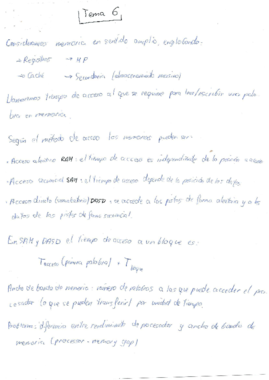 Tema 6
Consideramos memoria en sentido amplio, englobando:
→ Registros → MP
→ Caché → Secundaria (almacenamiento masivo)
Llamaremos tiempo de acceso al que se requiere para leer/escribir una pala-
bra en memoria.
Según el método de acceso las memorias pueden ser:
· Acceso aleatorio RAM: el tiempo de acceso es independiente de la posición a
· Acceso secuencial SAM: el tiempo de acceso depende de la posición de los
· Acceso directo DASD: se accede a las pistas de forma aleatoria y a los
datos de las pistas de forma secuencial.
En SAM y DASD el tiempo de acceso a un bloque es:
T (primera palabra) + T
Ancho de banda de memoria: número de palabras a las que puede acceder el pro-
cesador (o que se pueden transferir) por unidad de tiempo.
Problema: diferencia entre rendimiento de procesador y ancho de banda de
memoria (processor-memory gap)